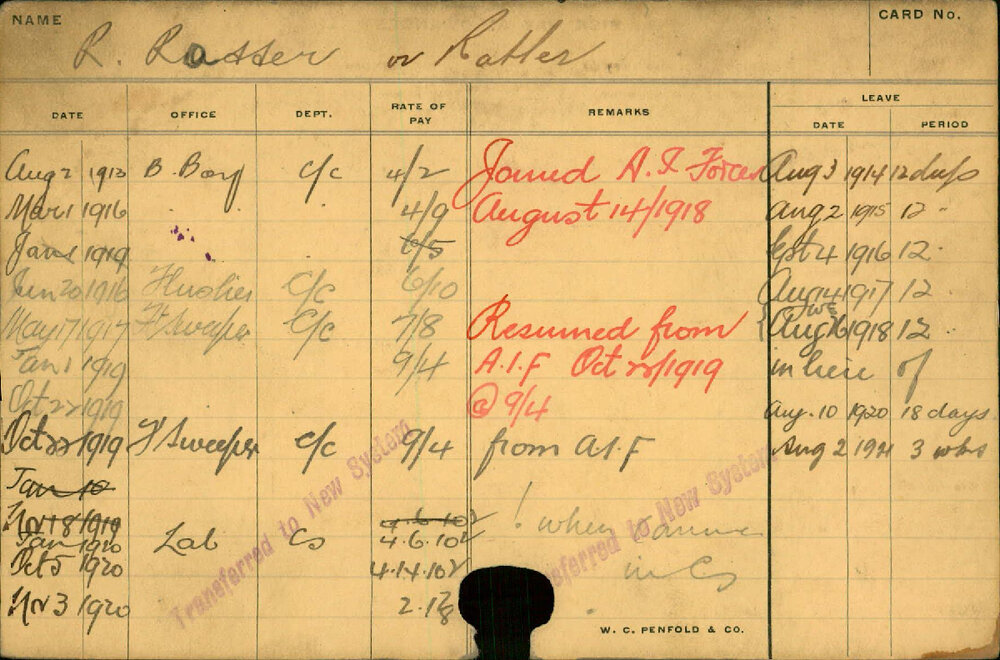 NAME
CARD No.
R. Rasser or Ratler
DATE OFFICE DEPT. RATE OF PAY REMARKS LEAVE
DATE PERIOD
Aug 2 1913 B. Boy C/c 4/2 Joined A.I. Forces Aug 3 1914 12 days
Mar 1 1916 4/9 August 14/1918 Aug 2 1915 12 "
Jan 1 1919 6/5 Sept 4 1916 12 "
Jun 20 1916 C/c 6/10 Aug 14 1917 12
May 17 1917 F Sweeper C/c 7/8 Resumed from Aug 16 1918 12
Jan 1 1919 9/4 A.I.F Oct 22/1919 in lieu of
Oct 22 1919 @ 9/4 Aug. 10 1920 18 days
Oct 22 1919 F Sweeper C/c 9/4 from A.I.F Aug 2 1921 3 wks
Jan 10
Nov 18/1919 4.6.10½ ! when
Jan 1920 Lab Cs 4.6.10½
Oct 5 1920 4.14.10½ in
Nov 3 1920
Transferred to New System
Transferred to New System
W. C. PENFOLD & CO.